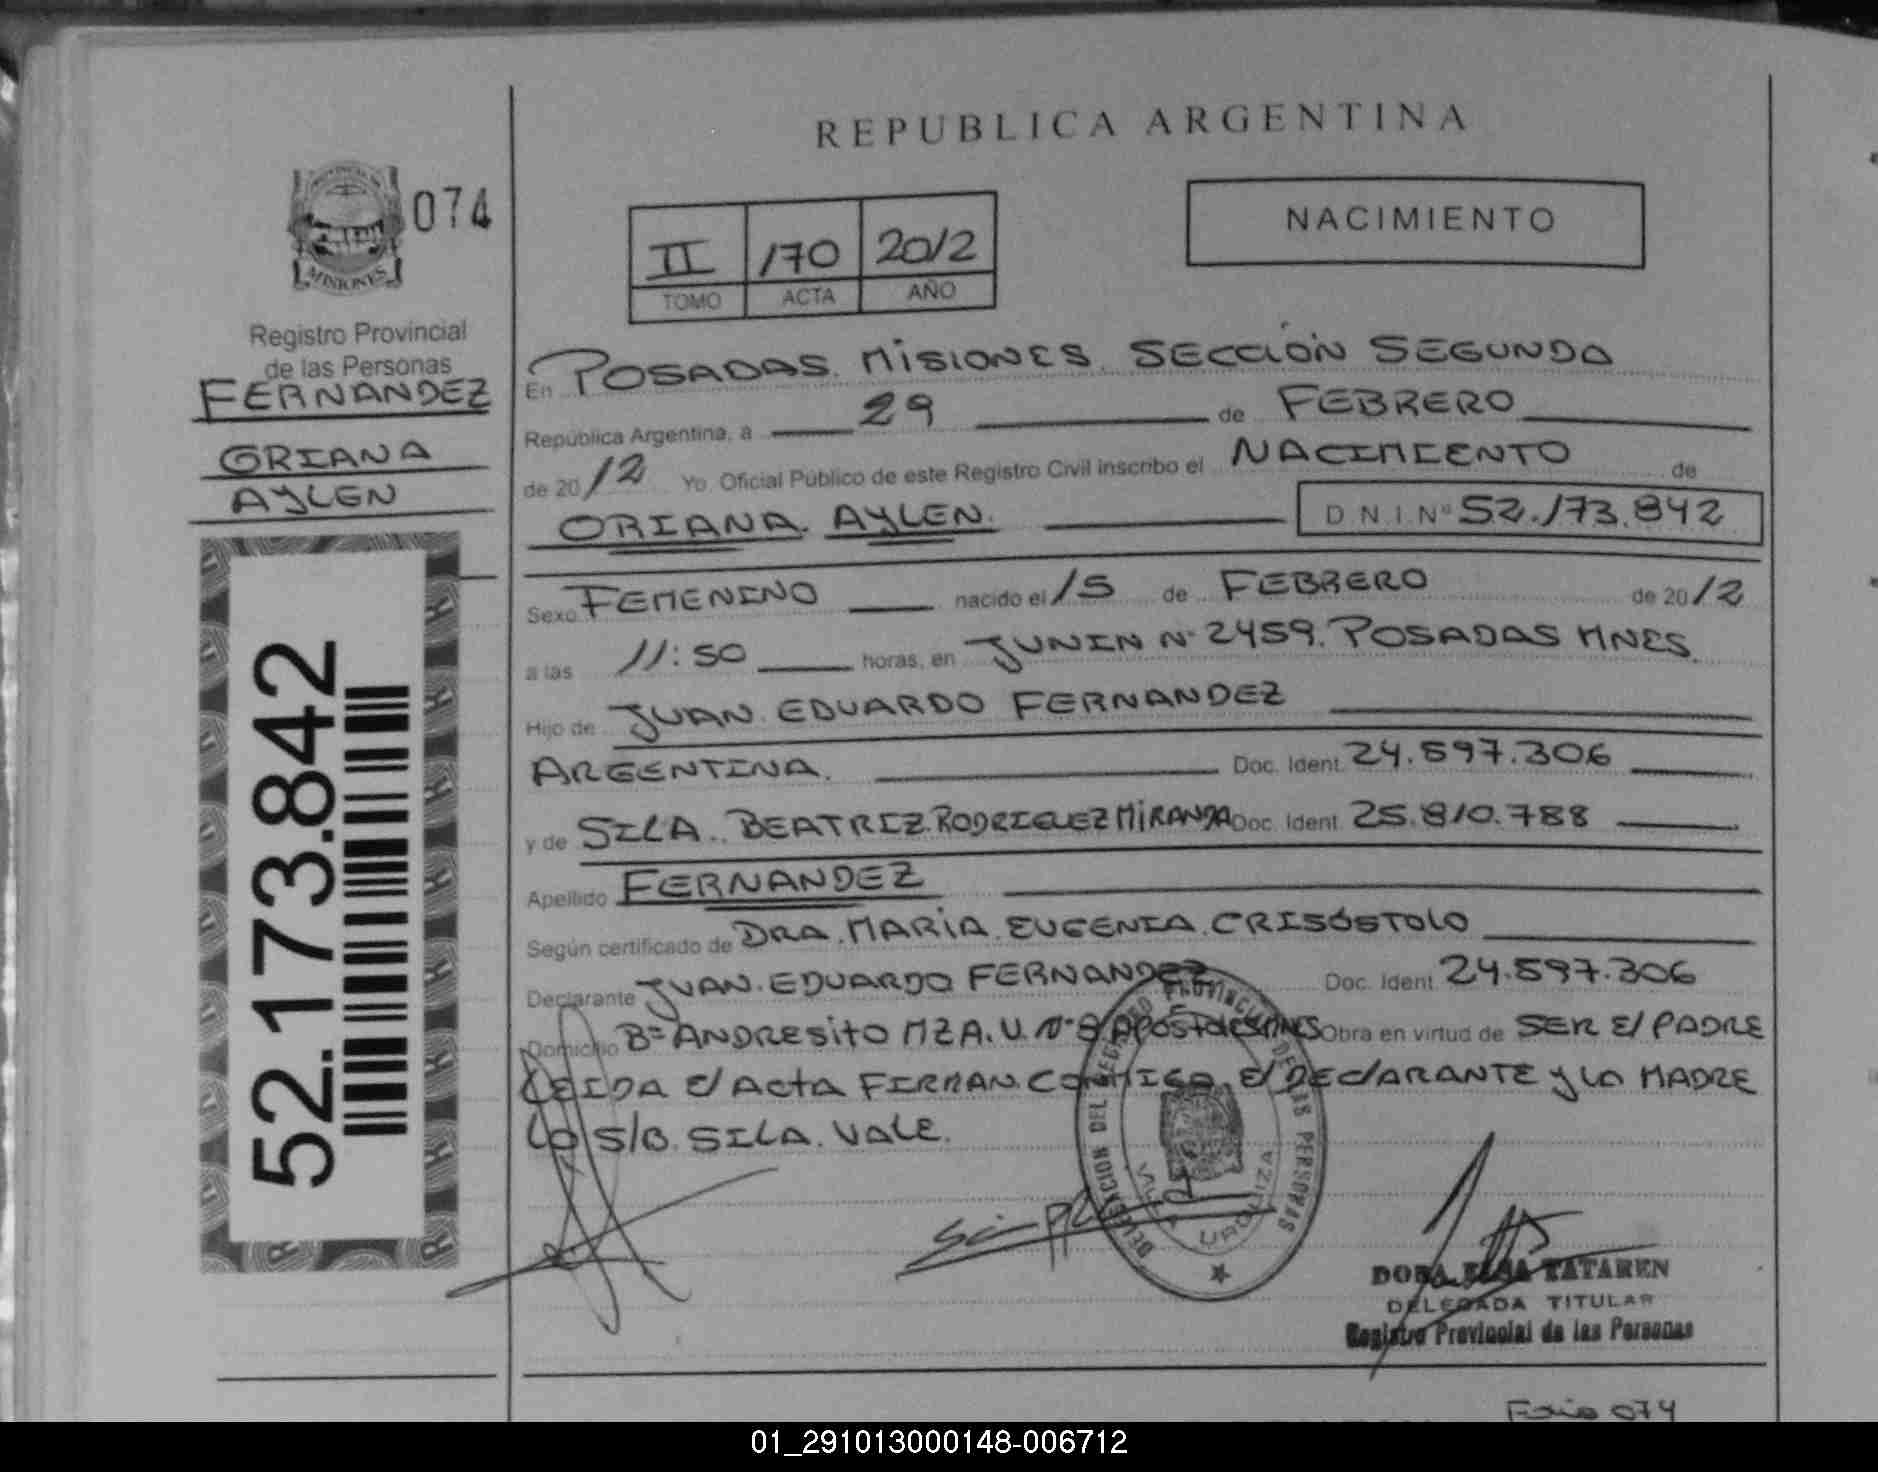 REPUBLICA ARGENTINA
074
MISIONES
Registro Provincial
de las Personas
FERNANDEZ
ORIANA
AYLEN
52.173.842
II 170 2012
TOMO ACTA AÑO
NACIMIENTO
En POSADAS. MISIONES. SECCIÓN SEGUNDA
República Argentina, a 29 de FEBRERO
de 2012 Yo Oficial Público de este Registro Civil inscribo el NACIMIENTO de
ORIANA. AYLEN. D N I Nº 52.173.842
Sexo FEMENINO nacido el 15 de FEBRERO de 2012
a las 11:50 horas, en JUNIN Nº 2459. POSADAS MNES.
Hijo de JUAN. EDUARDO FERNANDEZ
ARGENTINA. Doc. Ident. 24.597.306
y de SILA. BEATRIZ. RODRIGUEZ MIRANDA Doc. Ident. 25.810.788
Apellido FERNANDEZ
Según certificado de DRA. MARÍA. EUGENIA. CRISÓSTOLO
Declarante JUAN. EDUARDO FERNANDEZ Doc. Ident. 24.597.306
Domicilio Bº ANDRESITO MZA. U. Nº 8 APOSTOLES MNES Obra en virtud de SER El PADRE
LEIDA El ACTA FIRMAN. CONMIGO. El DEClARANTE y LA MADRE
LO S/B. SILA. VALE.
DELEGACION DEL REGISTRO PROVINCIAL DE LAS PERSONAS
VILLA URQUIZA
DORA ELSA TATAREN
DELEGADA TITULAR
Registro Provincial de las Personas
Folio 074
01_291013000148-006712